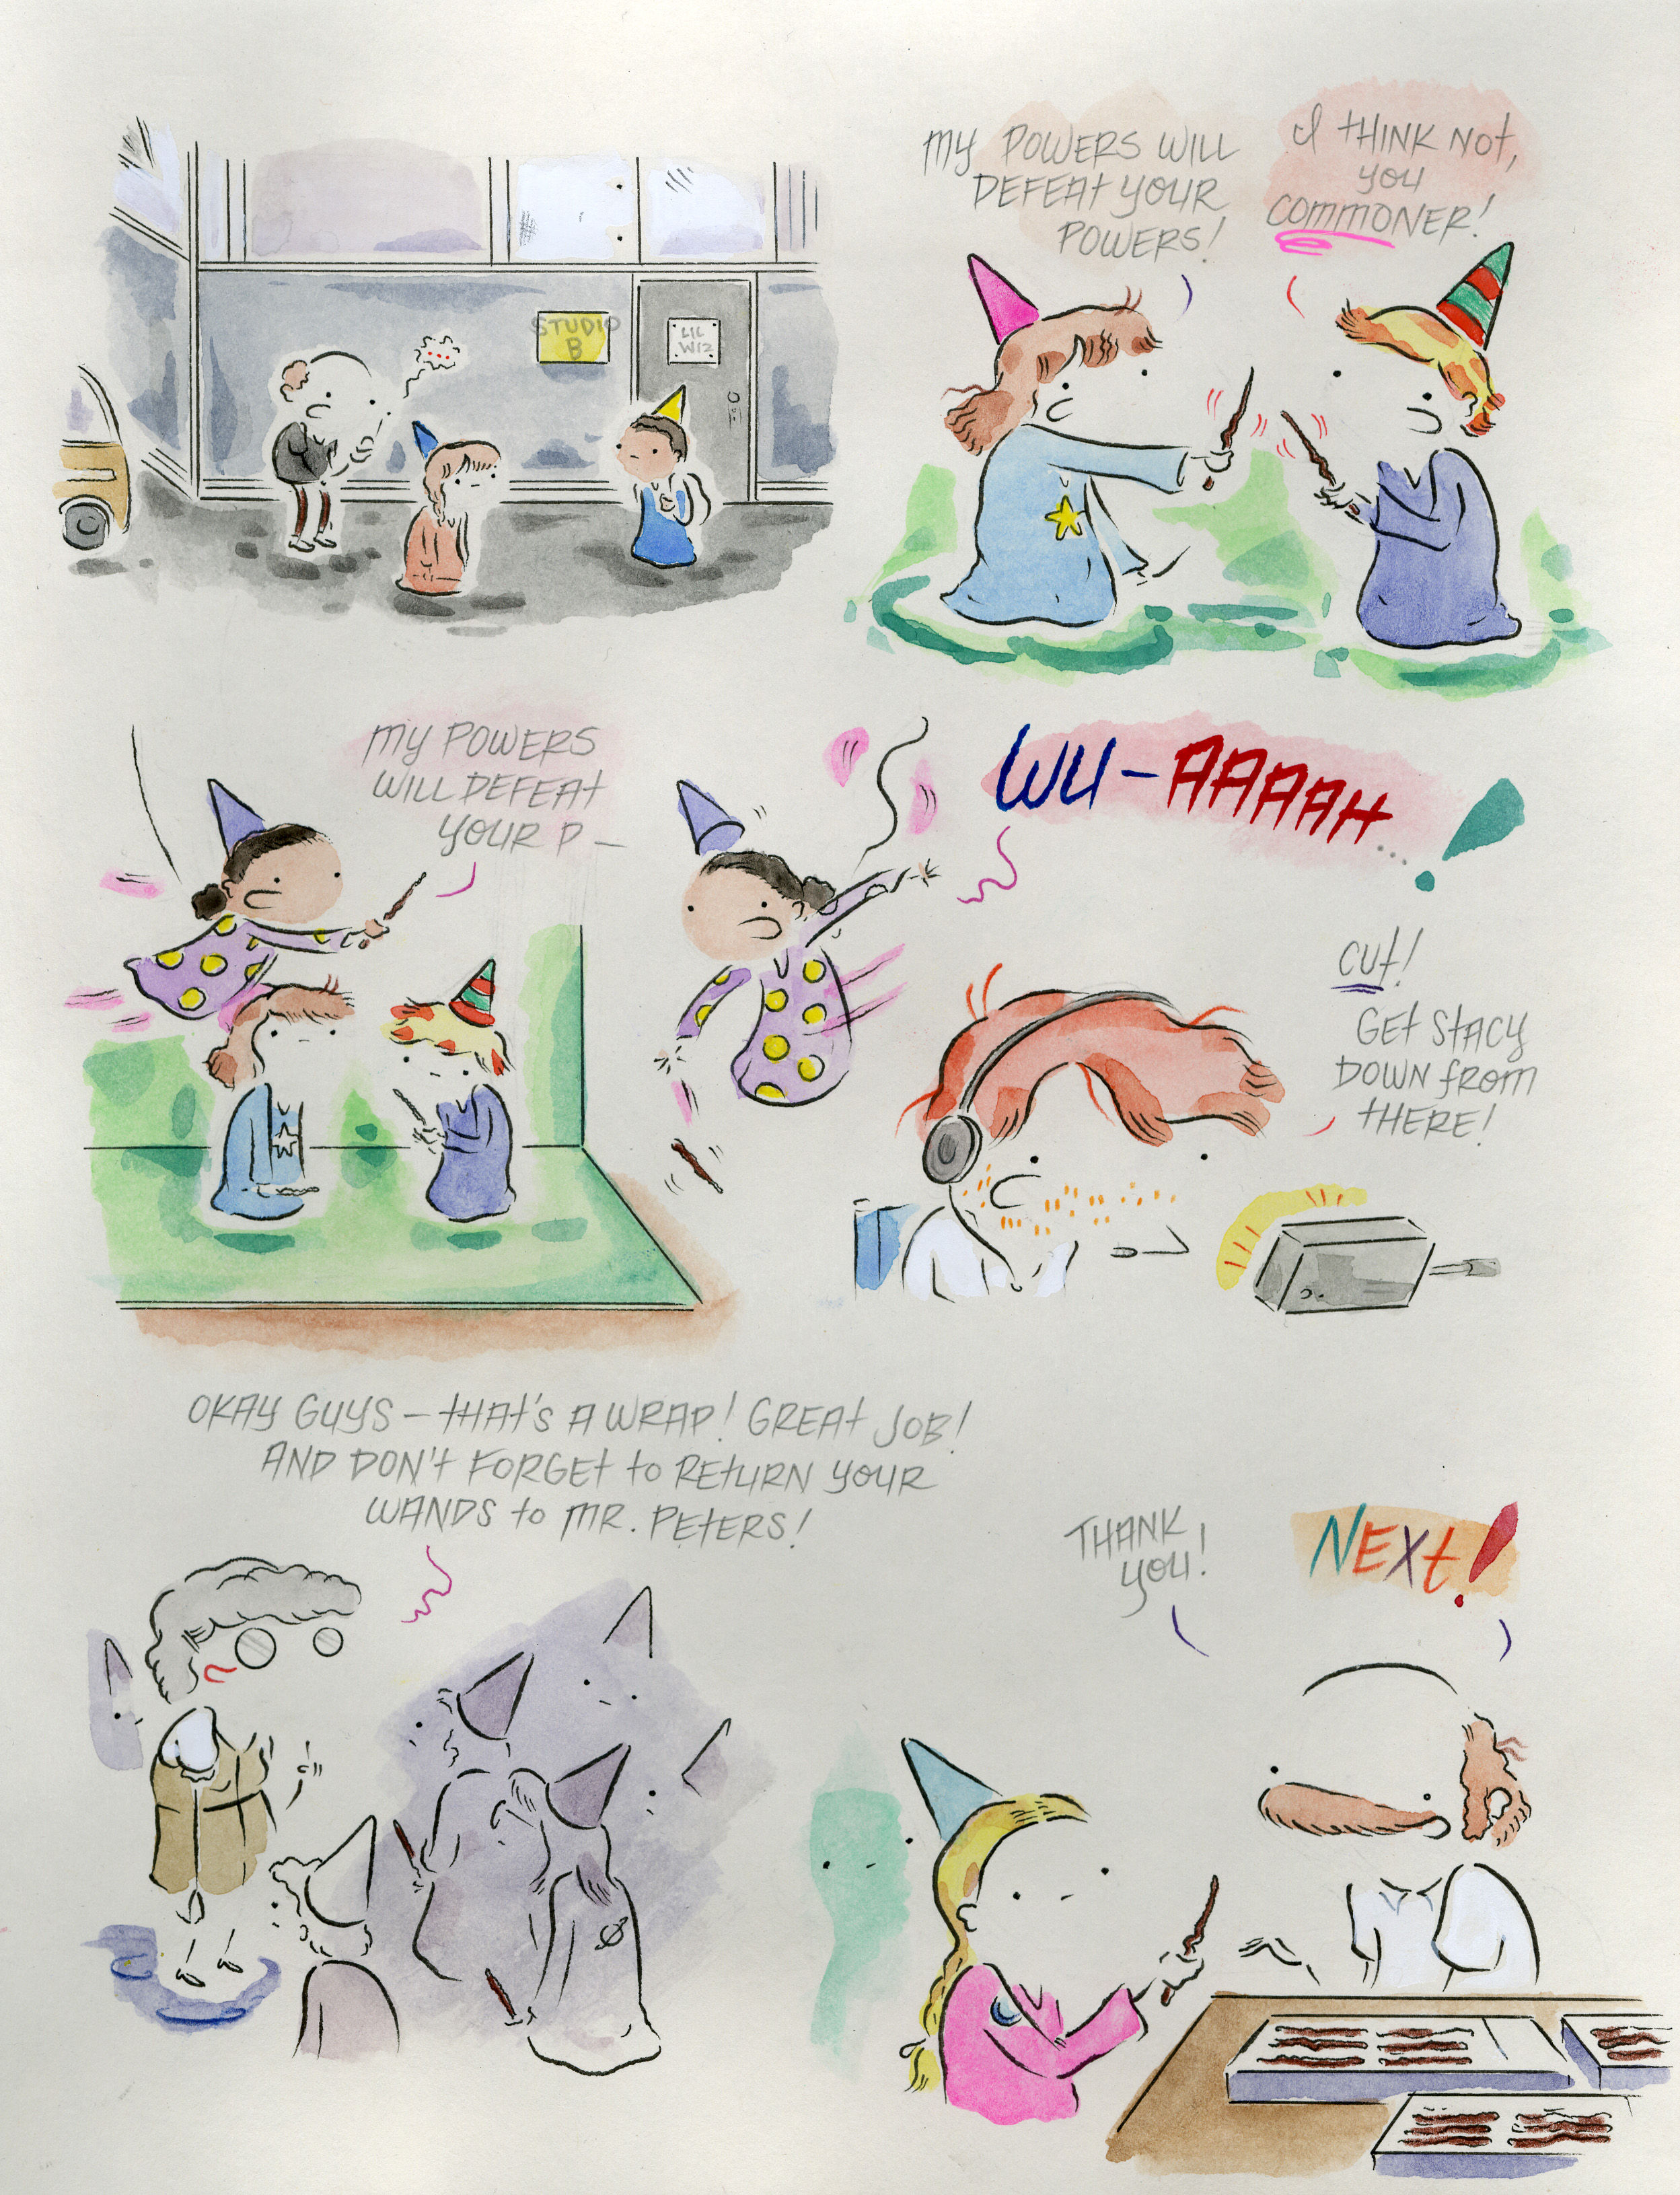 STUDIO
B
LIL
WIZ
MY POWERS WILL
DEFEAT YOUR
POWERS!
I THINK NOT,
YOU
COMMONER!
MY POWERS
WILL DEFEAT
YOUR P—
WU-AAAAH...!
CUT!
GET STACY
DOWN FROM
THERE!
OKAY GUYS — THAT'S A WRAP! GREAT JOB!
AND DON'T FORGET TO RETURN YOUR
WANDS TO MR. PETERS!
THANK
YOU!
NEXT!